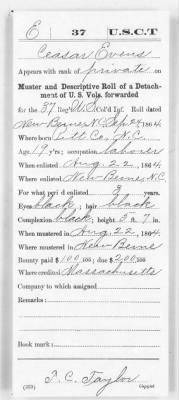 E 37 U.S.C.T
Ceasar Evens
Appears with rank of private on
Muster and Descriptive Roll of a Detach-
ment of U. S. Vols. forwarded
for the 37 Reg't U.S. Col'd Inf. Roll dated
New Berne N.C. Sep 24, 1864.
Where born Pitt Co., N.C.
Age 19 y'rs; occupation laborer
When enlisted Aug. 22, 1864.
Where enlisted New Berne N.C.
For what period enlisted 3 years.
Eyes black; hair black
Complexion black; height 5 ft. 7 in.
When mustered in Aug 22, 1864.
Where mustered in New Berne
Bounty paid $100 100; due $200 100
Where credited Massachusetts
Company to which assigned
Remarks:
Book mark:
T. C. Taylor
(339) Copyist